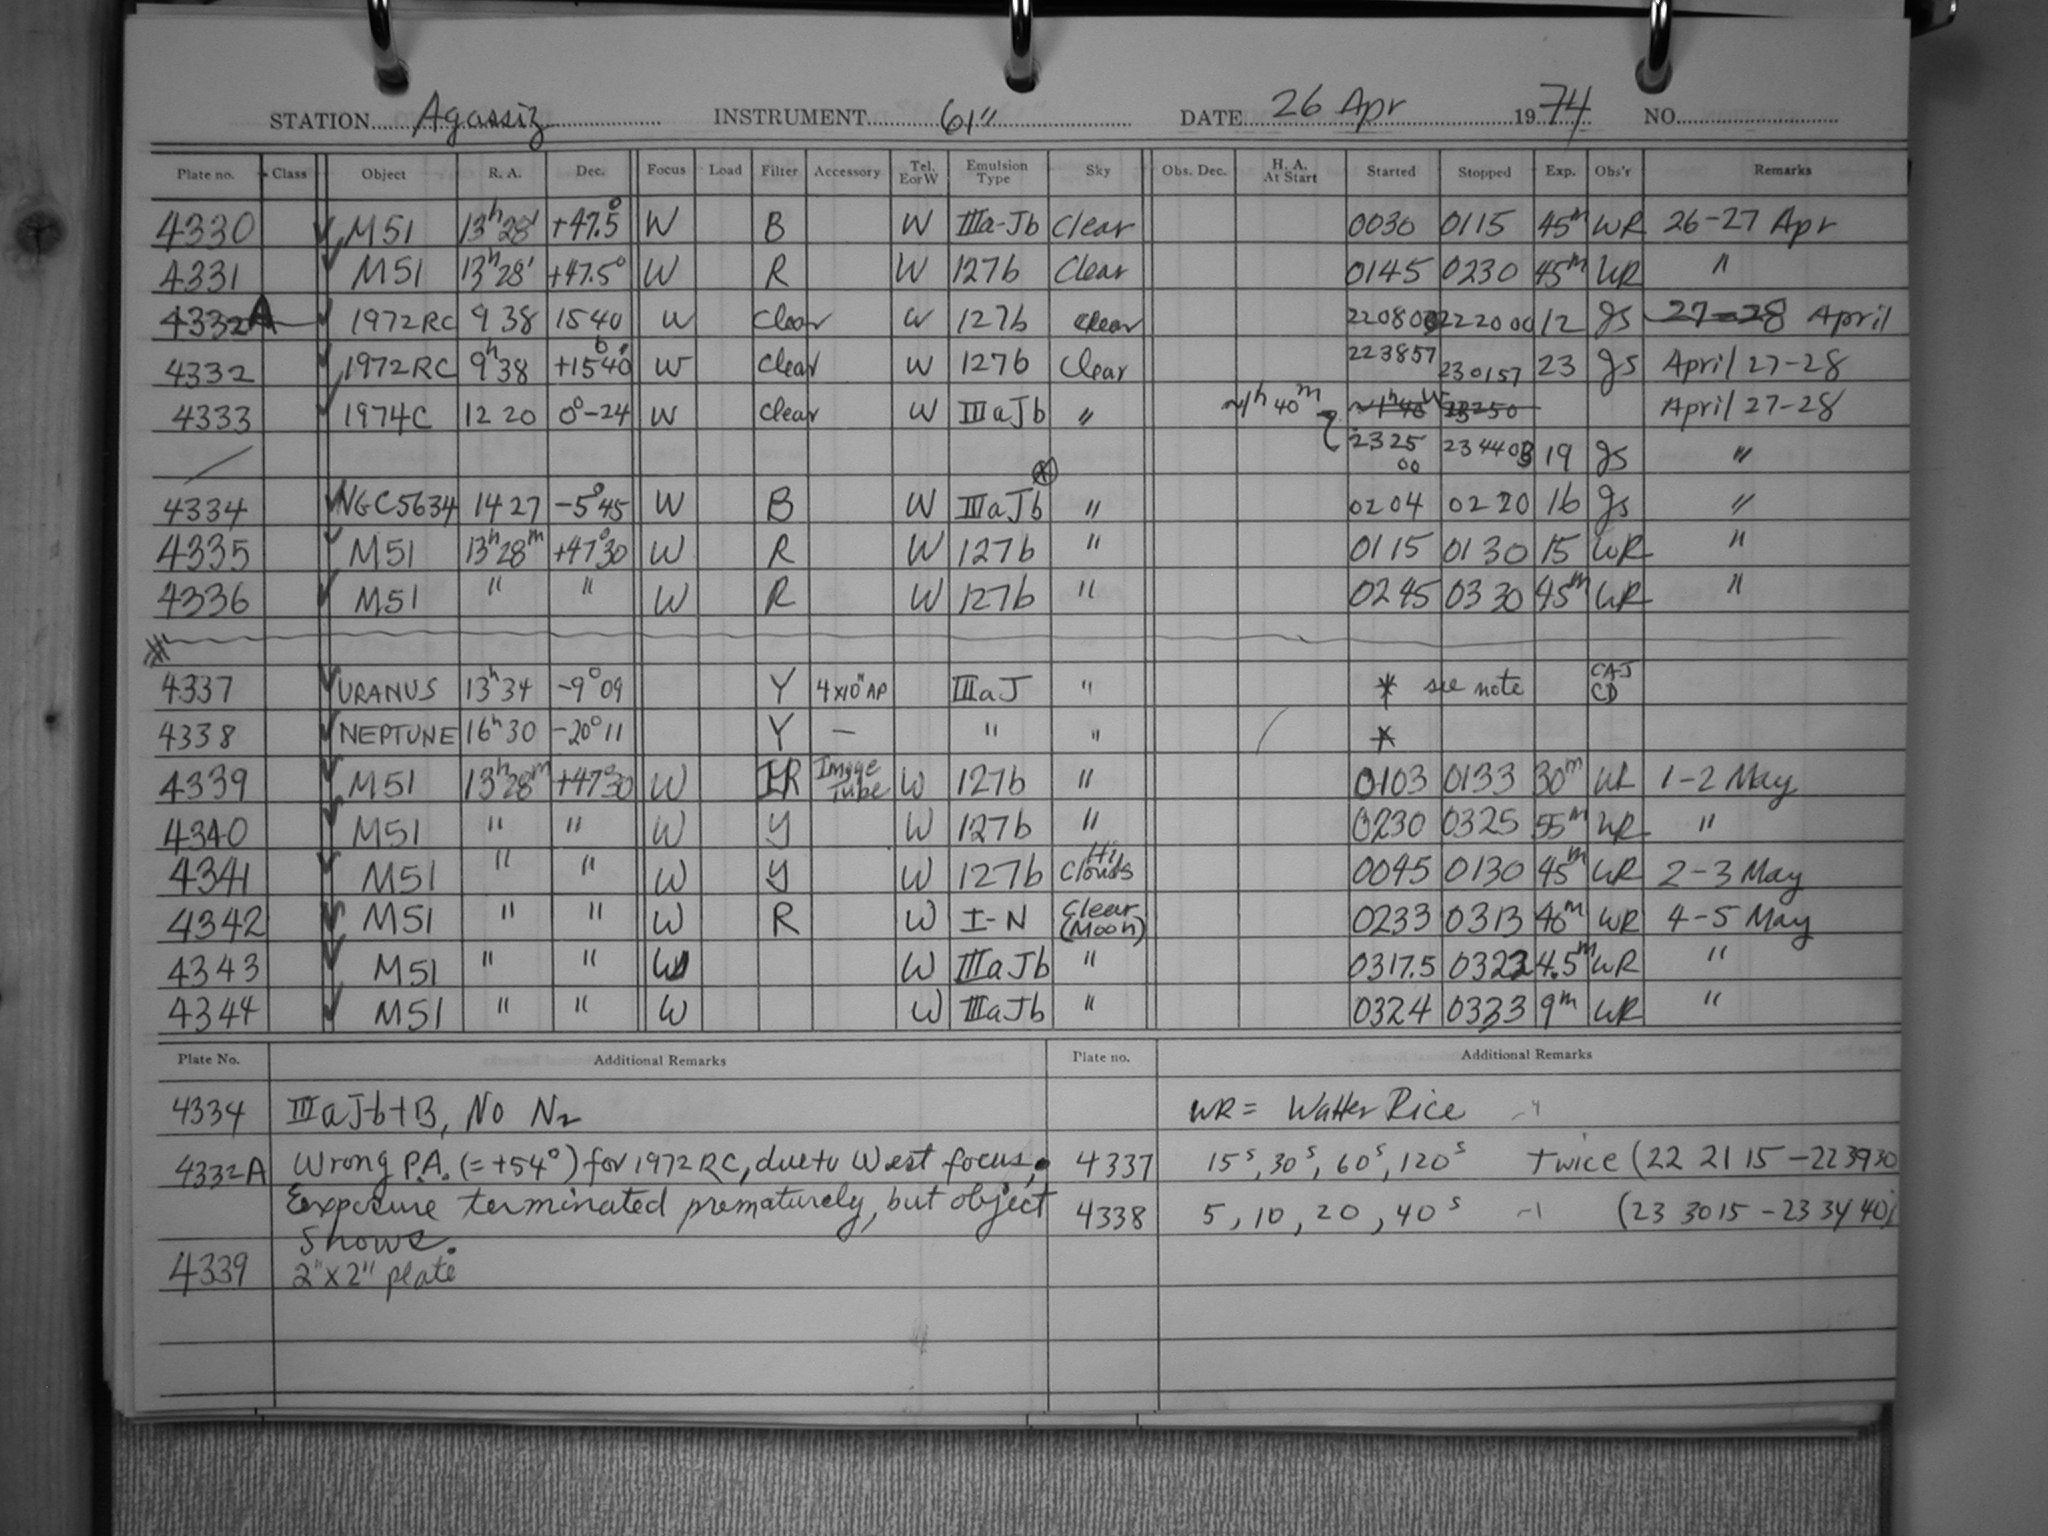 STATION Agassiz INSTRUMENT 61" DATE 26 Apr 1974 NO.
Plate no. Class Object R. A. Dec. Focus Load Filter Accessory Tel. E or W Emulsion Type Sky Obs. Dec. H. A. At Start Started Stopped Exp. Obs'r Remarks
4330 ✓ M51 13h 28' +47.5° W B W IIIa-Jb Clear 0030 0115 45m WR 26-27 Apr
4331 ✓ M51 13h 28' +47.5° W R W 127b Clear 0145 0230 45m WR "
4332A ✓ 1972RC 9 38 15 40 W Clear W 127b Clear 220800 222000 12 gs 27-28 April
4332 ✓ 1972RC 9h 38 +15 40 W Clear W 127b Clear 223857 230157 23 gs April 27-28
4333 ✓ 1974C 12 20 0°-24 W Clear W IIIaJb " ~1h 40m ~1h 40 W 23250 April 27-28
2325 00 234403 19 gs "
4334 ✓ NGC5634 14 27 -5° 45 W B W IIIaJb * " 0204 0220 16 gs "
4335 ✓ M51 13h 28m +47° 30 W R W 127b " 0115 0130 15 WR "
4336 ✓ M51 " " W R W 127b " 0245 0330 45m WR "
4337 ✓ URANUS 13h 34 -9° 09 Y 4x10" AP IIIaJ " * see note CAJ CD
4338 ✓ NEPTUNE 16h 30 -20° 11 Y — " " *
4339 ✓ M51 13h 28m +47° 30 W IR Image Tube W 127b " 0103 0133 30m WR 1-2 May
4340 ✓ M51 " " W Y W 127b " 0230 0325 55m WR "
4341 ✓ M51 " " W Y W 127b Hi Clouds 0045 0130 45m WR 2-3 May
4342 ✓ M51 " " W R W I-N Clear (Moon) 0233 0313 40m WR 4-5 May
4343 ✓ M51 " " W W IIIaJb " 0317.5 0322 4.5m WR "
4344 ✓ M51 " " W W IIIaJb " 0324 0333 9m WR "
Plate No. Additional Remarks Plate no. Additional Remarks
4334 IIIaJb+B, No N2 WR = Walter Rice
4332A Wrong P.A. (= +54°) for 1972 RC, due to West focus. 4337 15s, 30s, 60s, 120s Twice (22 21 15 - 22 39 30
Exposure terminated prematurely, but object 4338 5, 10, 20, 40s (23 30 15 - 23 34 40)
shows.
4339 2"x2" plate